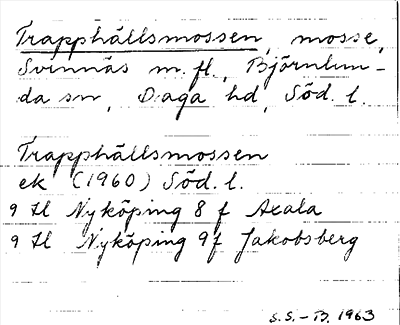 Trapphällsmossen, mosse,
Svinnäs m.fl., Björnlun-
da sn, Daga hd, Söd. l.
Trapphällsmossen
ek (1960) Söd. l.
9 H Nyköping 8 f Axala
9 H Nyköping 9f Jakobsberg
S.S.-B. 1963